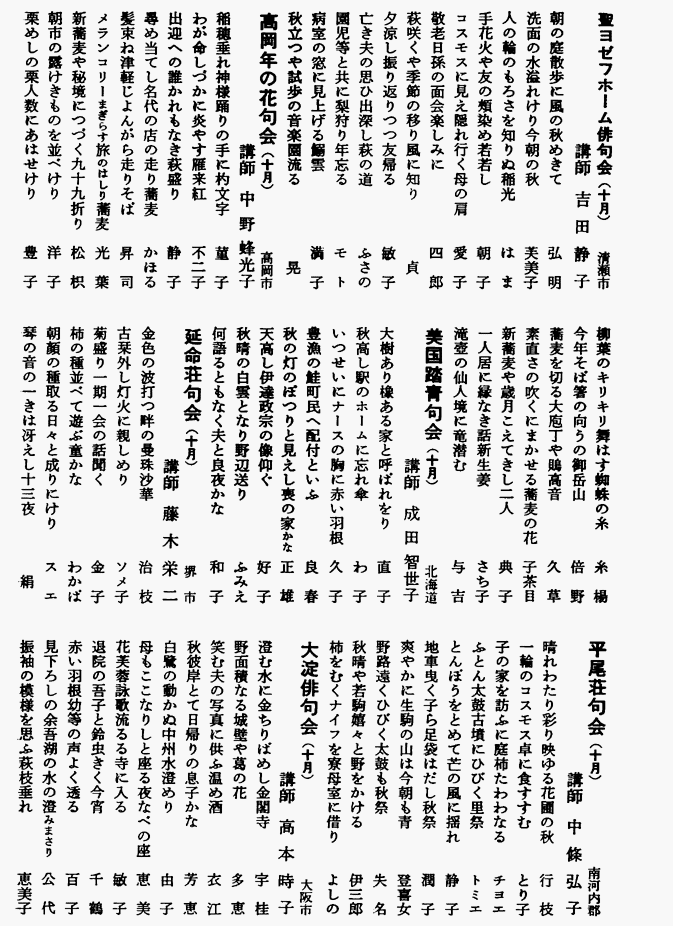 聖ヨゼフホーム俳句会（十月）
清瀬市
講師 吉田静子
朝の庭散歩に風の秋めきて 弘明
洗面の水溢れけり今朝の秋 芙美子
人の輪のもろさを知りぬ稲光 はま
手花火や友の頰染め若若し 朝子
コスモスに見え隠れ行く母の肩 愛子
敬老日孫の面会楽しみに 四郎
萩咲くや季節の移り風に知り 貞
夕涼し振り返りつつ友帰る 敏子
亡き夫の思ひ出深し萩の道 ふさの
園児等と共に梨狩り年忘る モト
病室の窓に見上げる鰯雲 満子
秋立つや試歩の音楽園流る 晃
高岡年の花句会（十月）
高岡市
講師 中野蜂光子
稲穂垂れ神様踊りの手に杓文字 菫子
わが命しづかに炎やす雁来紅 不二子
出迎への誰かれもなき萩盛り 静子
尋め当てし名代の店の走り蕎麦 かほる
髪束ね津軽じよんがら走りそば 昇司
メランコリーまぎらす旅のはしり蕎麦 光葉
新蕎麦や秘境につづく九十九折り 松枳
朝市の露けきものを並べけり 洋子
栗めしの栗人数にあはせけり 豊子
柳葉のキリキリ舞はす蜘蛛の糸 糸楊
今年そば箸の向うの御岳山 倍野
蕎麦を切る大庖丁や鵙高音 久草
素直さの吹くにまかせる蕎麦の花 子茶目
新蕎麦や歳月こえてきし二人 典子
一人居に縁なき話新生姜 さち子
滝壺の仙人境に竜潜む 与吉
美国踏青句会（十月）
北海道
講師 成田智世子
大樹あり椽ある家と呼ばれをり 直子
秋高し駅のホームに忘れ傘 わ子
いつせいにナースの胸に赤い羽根 久子
豊漁の鮭町民へ配付といふ 良春
秋の灯のぽつりと見えし喪の家かな 正雄
天高し伊達政宗の像仰ぐ 好子
秋晴の白雲となり野辺送り ふみえ
何語るともなく夫と良夜かな 和子
延命荘句会（十月）
堺市
講師 藤木栄二
金色の波打つ畔の曼珠沙華 治枝
古栞外し灯火に親しめり ソメ子
菊盛り一期一会の話聞く 金子
柿の種並べて遊ぶ童かな わかば
朝顔の種取る日々と成りにけり スエ
琴の音の一きは冴えし十三夜 絹
平尾荘句会（十月）
南河内郡
講師 中條弘子
晴れわたり彩り映ゆる花圃の秋 行枝
一輪のコスモス卓に食すすむ とり子
子の家を訪ふに庭柿たわわなる チヨエ
ふとん太鼓古墳にひびく里祭 トミエ
とんぼうをとめて芒の風に揺れ 静子
地車曳く子ら足袋はだし秋祭 潤子
爽やかに生駒の山は今朝も青 登喜女
野路遠くひびく太鼓も秋祭 失名
秋晴や若駒嬉々と野をかける 伊三郎
柿をむくナイフを寮母室に借り よしの
大淀俳句会（十月）
大阪市
講師 高本時子
澄む水に金ちりばめし金閣寺 宇桂
野面積なる城壁や葛の花 多恵
笑む夫の写真に供ふ温め酒 衣江
秋彼岸とて日帰りの息子かな 芳恵
白鷺の動かぬ中州水澄めり 由子
母もここなりしと座る夜なべの座 恵美
花芙蓉詠歌流るる寺に入る 敏子
退院の吾子と鈴虫きく今宵 千鶴
赤い羽根幼等の声よく透る 百子
見下ろしの余吾湖の水の澄みまさり 公代
振袖の模様を思ふ萩枝垂れ 恵美子